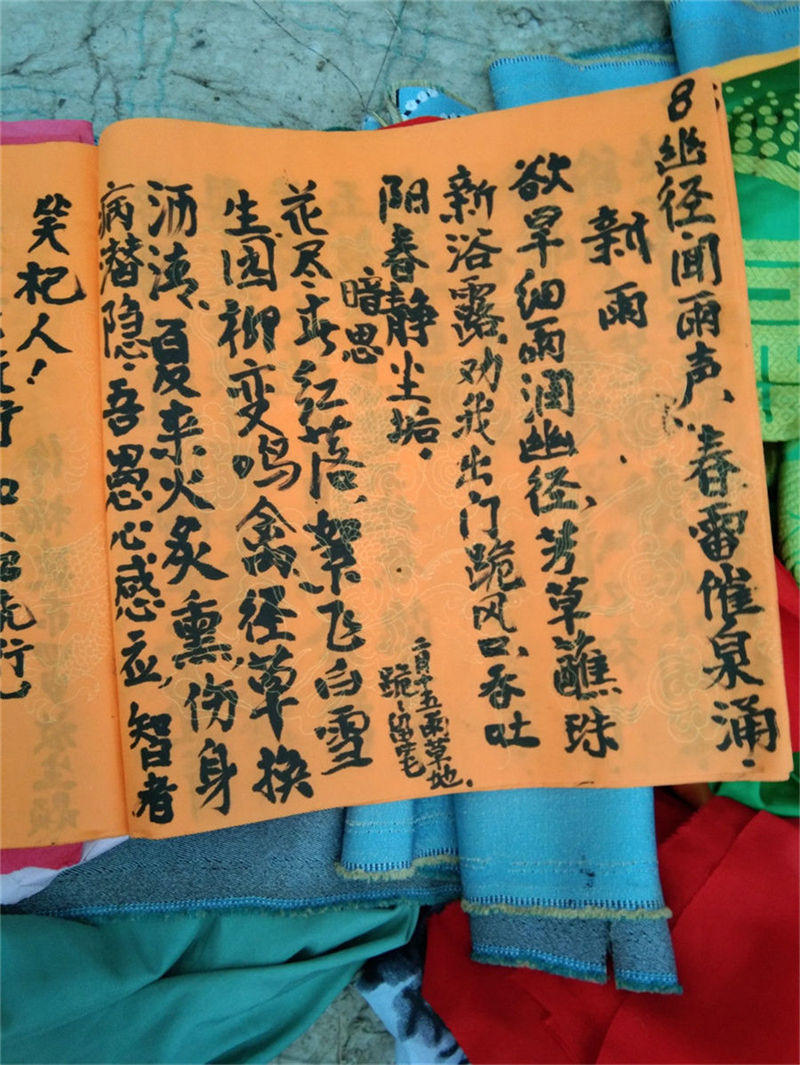 8幽径闻雨声、春雷催泉涌.
新雨
欲旱细雨润幽径、芳草蘸珠
新浴露、劝我出门跪风口、吞吐
阳春静尘垢.
二月十五雨草地.
跪
暗思
花尽春红落、絮飞白雪
生园柳变鸣禽、径草换
洒清、夏来火炙熏、伤身
病替隐、吾愚心感应,智者
笑杞人!